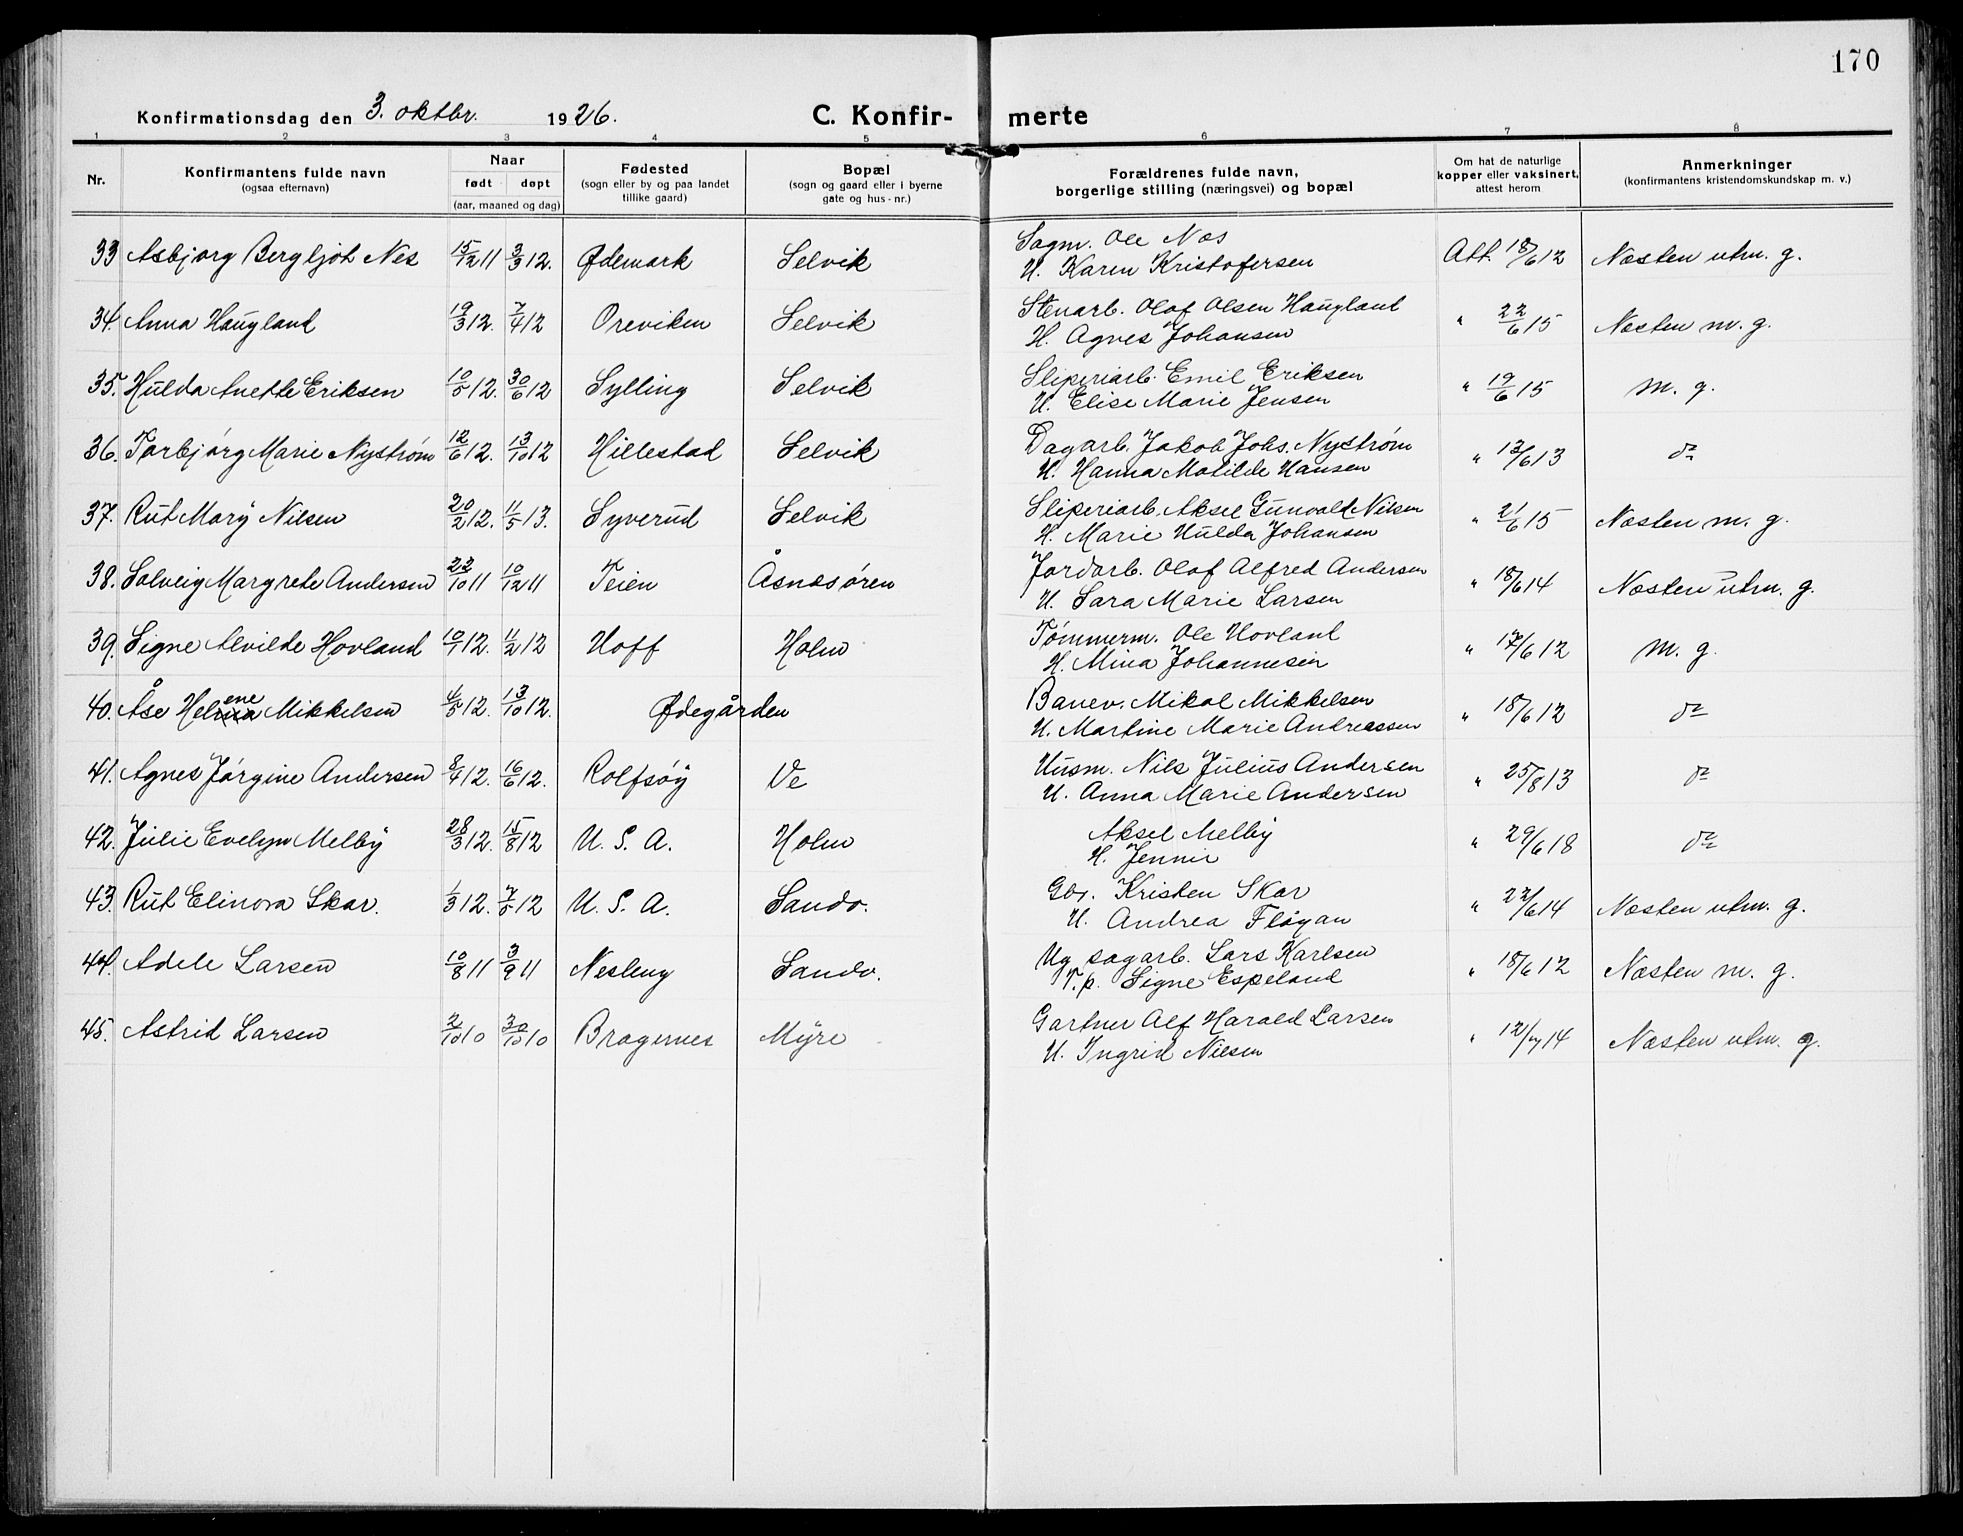 170
Konfirmationsdag den 3. oktbr. 1926. C. Konfir- merte
1 2 3 4 5 6 7 8
Nr. Konfirmantens fulde navn (ogsaa efternavn) Naar født døpt (aar, maaned og dag) Fødested (sogn eller by og paa landet tillike gaard) Bopæl (sogn og gaard eller i byerne gate og hus-nr.) Forældrenes fulde navn, borgerlige stilling (næringsvei) og bopæl Om hat de naturlige kopper eller vaksinert, attest herom Anmerkninger (konfirmantens kristendomskundskap m. v.)
33 Asbjørg Bergljot Nes 15/12 11 3/3 12. Ødemark Selvik Sagm. Ole Næs Att. 18/6 12 Næsten utm. g.
H. Karen Kristofersen
34. Anna Haugland 19/3 12. 7/4 12 Oreviken Selvik Stenarb. Olaf Olsen Haugland " 22/6 15 Næsten m. g.
H. Agnes Johansen
35. Hulda Anette Eriksen 10/5 12. 30/6 12 Sylling Selvik Sliperiarb. Emil Eriksen " 19/6 15 m. g.
H. Elise Marie Jensen
36. Torbjørg Marie Nystrøm 12/6 12. 13/10 12 Hillestad Selvik Dagarb. Jakob Johs. Nystrøm " 13/6 13 do
H. Hanna Matilde Hansen
37. Rut Mary Nilsen 20/2 12. 11/5 13. Syverud Selvik Sliperiarb. Aksel Gunvald Nilsen " 21/6 15 Næsten m. g.
H. Marie Hulda Johansen
38. Solveig Margrete Andersen 22/10 11 10/12 11 Teien Åsnesøren Jordarb. Olaf Alfred Andersen " 18/6 14 Næsten utm. g.
H. Sara Marie Larsen
39. Signe Alvilde Hovland 10/1 12. 11/2 12 Hoff Holm Tømmerm. Ole Hovland " 17/6 12 m. g.
H. Mina Johannesen
40. Åse Helene Mikkelsen 4/5 12. 13/10 12. Ødegården Banev. Mikal Mikkelsen " 18/6 12 do
H. Martine Marie Andreassen
41. Agnes Jørgine Andersen 8/4 12. 16/6 12. Rolfsøy Ve Husm. Nils Julius Andersen " 25/8 13 do
H. Anna Marie Andersen
42. Julie Evelyn Melby 28/3 12. 15/8 12 U. S. A. Holm Aksel Melby " 29/6 18 do
H. Jennie
43. Rut Elinora Skar. 1/3 12. 7/5 12 U. S. A. Sande. Gbr. Kristen Skar " 22/6 14 Næsten utm. g.
H. Andrea Fløgan
44. Adele Larsen 10/8 11 3/9 11 Nesleng Sande. Ug. sagarb. Lars Karlsen " 18/6 12 Næsten m. g.
T.p. Signe Espeland
45. Astrid Larsen 2/10 10 30/10 10 Bragernes Myre Gartner Alf Harald Larsen " 12/7 14 Næsten utm. g.
H. Ingrid Nilsen